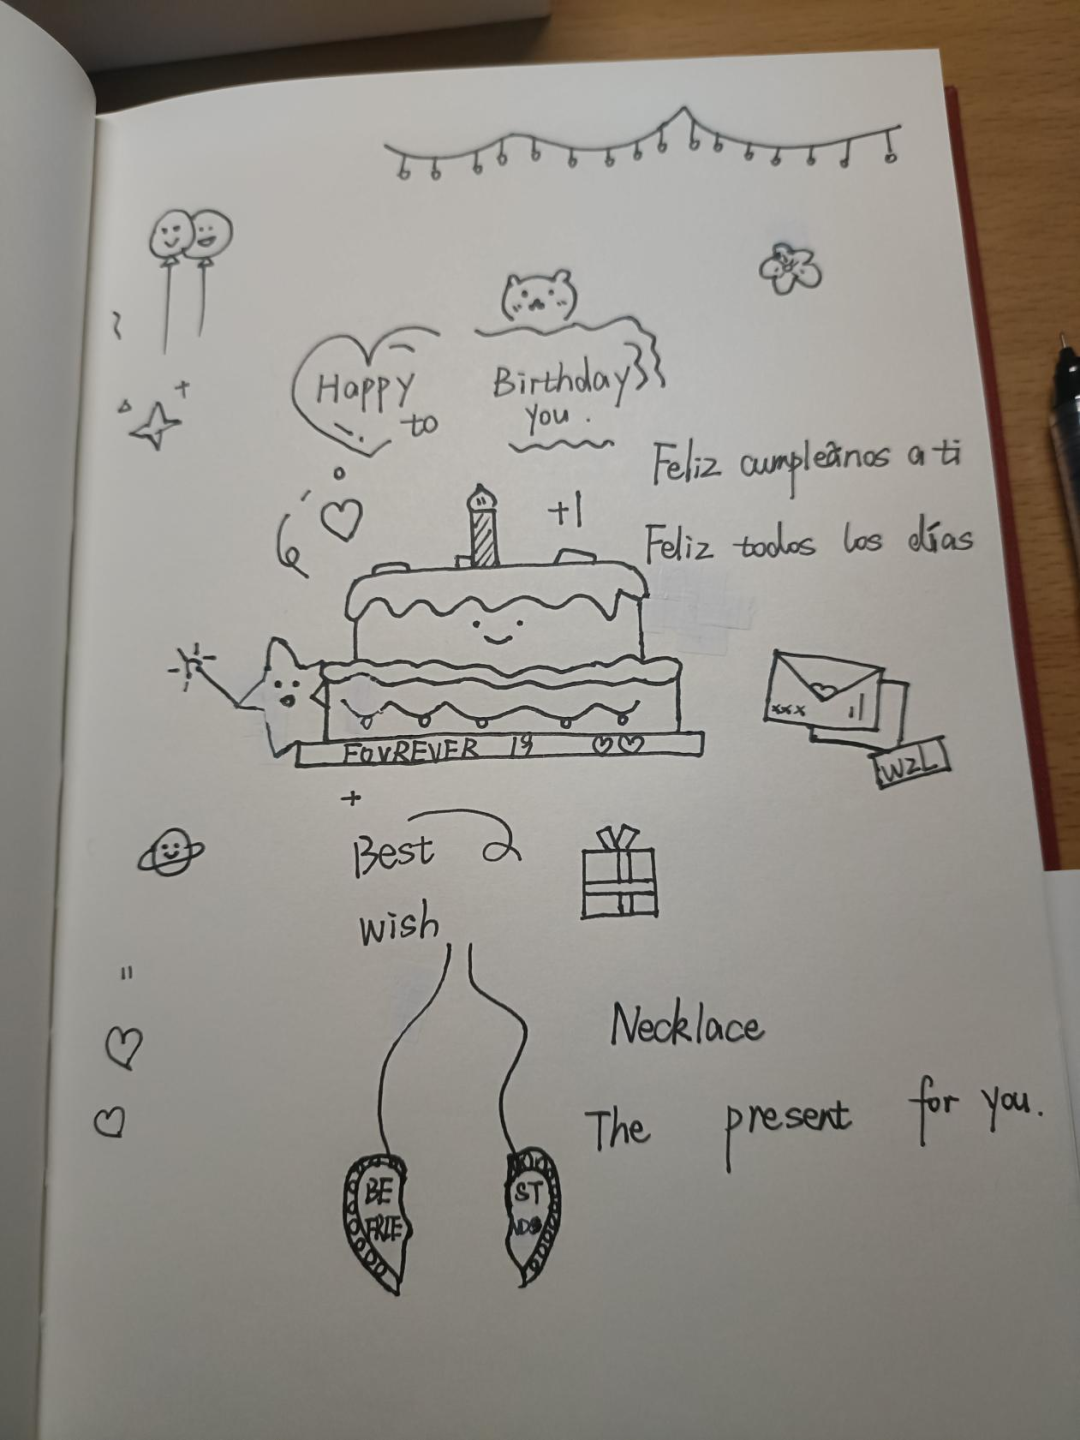 Happy Birthday
to you.
Feliz cumpleãnos a ti
+1
Feliz todos los días
FOVREVER 18
xxx
WZL
Best
wish
Necklace
The present for you.
BE ST
FRIE NDS